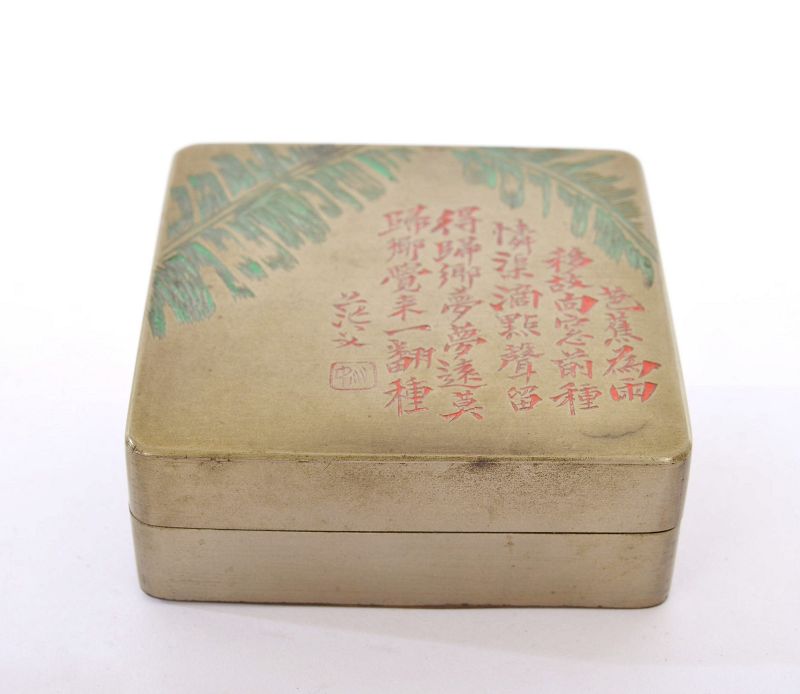 芭蕉為雨
移故向窓前種
憐渠滴點聲留
得歸鄉夢夢遠莫
歸鄉覺来一翻種
茫父